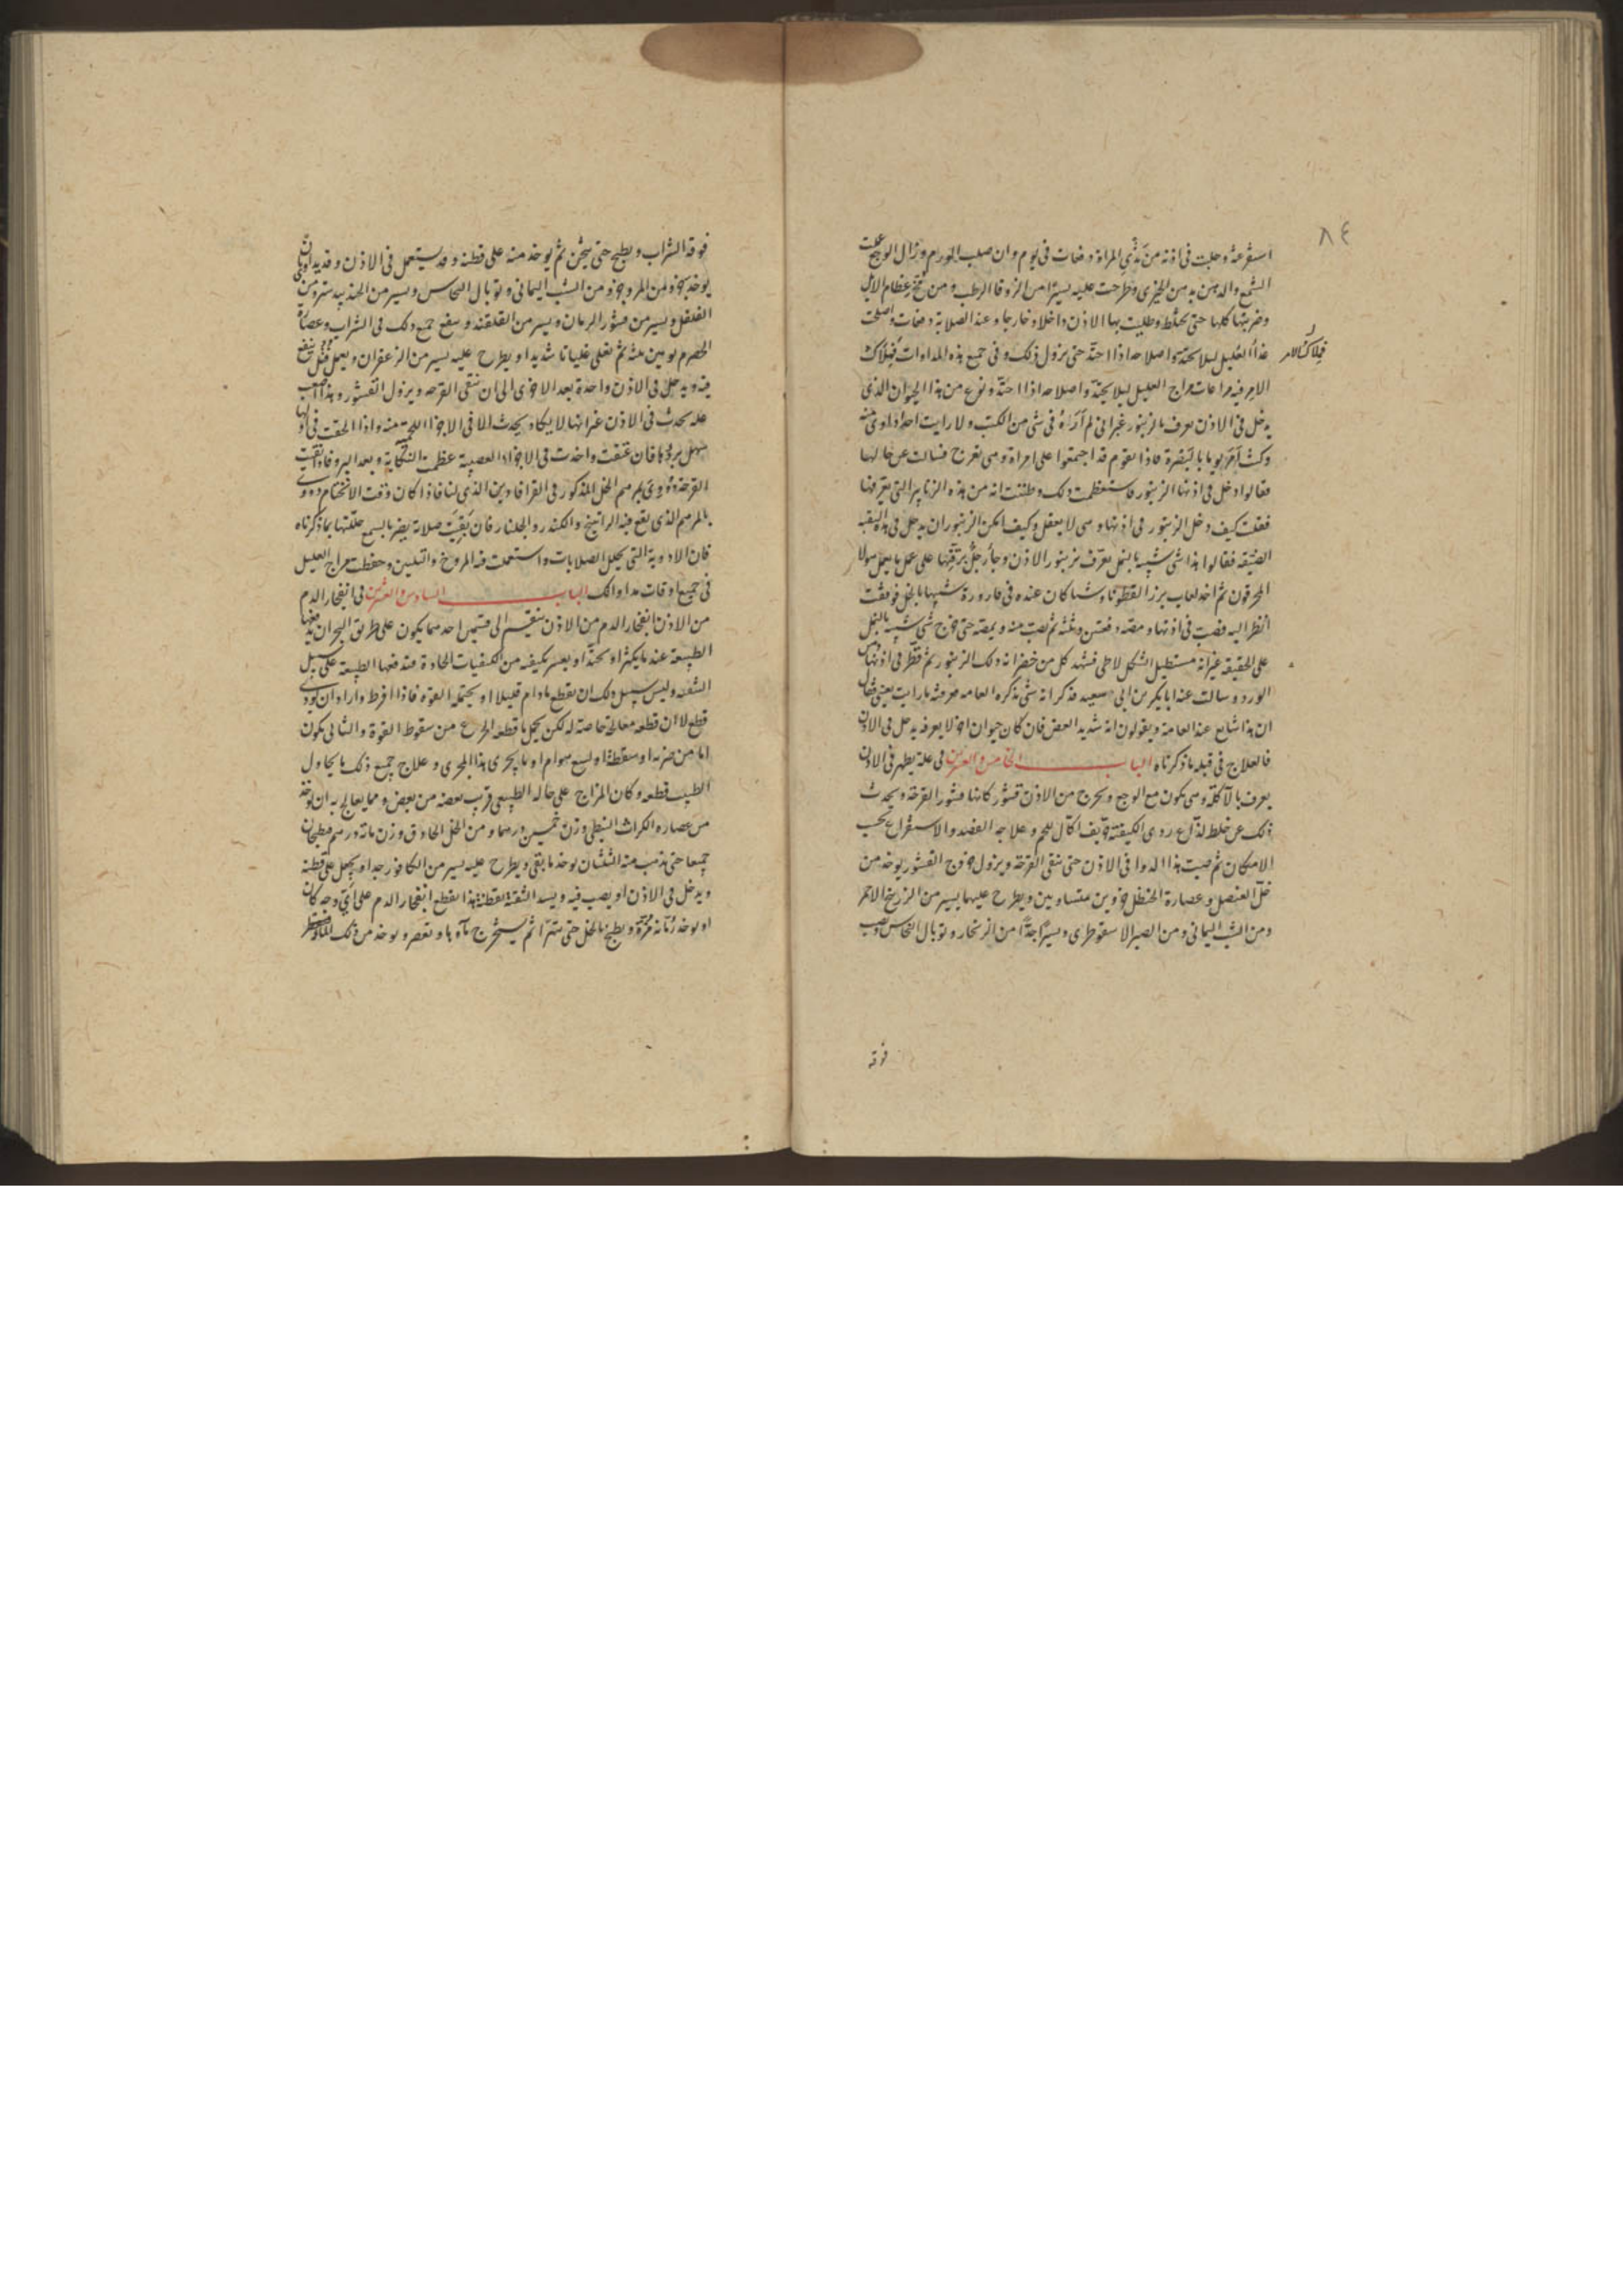 ٨٤
استفرغته وحلبت فى اذنه من ثدي المراة دفعات فى يوم وان صلب الورم وزال الوجع عملت
الشمع والدهن من الخيرى وطرحت عليه يسيرا من الزوفا الرطب ومن مخ عظام الايل
وضربتها كلها حتى يختلط وطليت بها الاذن داخلا وخارجا وعند الصلابة دفعات واصلحت
غذاا العليل ليلا يحتد واصلاحه اذا احتد حتى يزول ذلك وفى جميع هذه المداوات فملاك
فملاك الامر
الامر فيه مراعات مزاج العليل ليلا يحتد واصلاحه اذا احتد ونوع من هذا الحيوان الذى
يدخل فى الاذن يعرف بالزنبور غير انى لم اراه فى شى من الكتب ولا رايت احدا داوى منه
وكنت امر يوما بالبصرة فاذا بقوم قد اجتمعوا على امراة وهى تفرح فسالت عن حالها
فقالوا دخل فى اذنها الزنبور فاستعظمت ذلك وظننت انه من هذه الزنابير التى نعرفها
فقلت كيف دخل الزنبور فى اذنها وهى لا يعقل وكيف امكن الزنبور ان يدخل فى هذه الثقبه
الضيقه فقالوا هذا شى شبيه بالنمل يعرف بزنبور الاذن وجا رجل على عمل ما يعمل هولا
المحرقون ثم اخذ لعاب بزر القطونا وشيا كان عنده فى قارورة شبيها بالخل فوقفت
انظر اليه فصب فى اذنها ومصه دفعتين وثلثه ثم نصب منه ويمصه حتى خرج شى شبيه بالنمل
على الحقيقه غير انه مستطيل الشكل لاطى فشهد كل من حضر انه ذلك الزنبور ثم قطر فى اذنها دهن
الورد وسالت عنه ابا بكر بن ابى سعيد فذكر انه شى تذكره العامه فعرفته ما رايت بعينى فقال
ان هذا شايع عند العامة ويقولون انه شديد العض فان كان حيوان اخر لا يعرف يدخل فى الاذن
فالعلاج فى قتله ما ذكرناه الباب الخامس والعشرين فى علة يظهر فى الاذن
يعرف بالاكلة وهى يكون مع الوجع ويخرج من الاذن قشور كانها قشور القرحة ويحدث
ذلك عن خلط لذاع ردى الكيفية حريف اكال للحم وعلاجه الفصد والاستفراغ بحسب
الامكان ثم صب هذا الدوا فى الاذن حتى ينقى القرحة ويزول خروج القشور يوخذ من
خل العنصل وعصارة الحنظل جزوين متساويين ويطرح عليهما يسير من الزرنيخ الاحمر
ومن الشب اليمانى ومن الصبر الاسقوطرى ويسيرا جدا من الزنجار وتوبال النحاس ويصب
فوقه
فوقه الشراب ويطبخ حتى يثخن ثم يوخذ منه على قطنه وقد يستعمل فى الاذن وقد يداوى بان
يوخذ جزو من المر وجزو من الشب اليمانى وتوبال النحاس ويسير من الجندبيدستر ومن
الفلفل ويسير من قشور الرمان ويسير من القلقند وينقع جميع ذلك فى الشراب وعصارة
الحصرم يومين ثلثه ثم تغلى غليانا شديدا ويطرح عليه يسير من الزعفران ويعمل فتل ينقع
فيه ويدخل فى الاذن واحدة بعد الاخرى الى ان ينقى القرحه ويزول القشور وهذا اصعب
عله يحدث فى الاذن غير انها لا يكاد يحدث الا فى الاجزاا اللحمية منه واذا الحقت فى اولها
سهل بروها فان عتقت واخذت فى الاجزاء العصبية عظمت النكاية وبعد البرو فاذا نقيت
القرحة دووى بمرهم الخل المذكور فى القرافادين الذى لنا فاذا كان وقت الانختام دووى
بالمرهم الذى يقع فيه الراتينج والكندر والجلنار فان بقيت صلابة يضر بالسمع حللتها بما ذكرناه
فان الادوية التى يحلل الصلابات واستعملت فيه المروخ والتليين وحفظت مزاج العليل
فى جميع اوقات مداواتك الباب السادس والعشرين فى انفجار الدم
من الاذن انفجار الدم من الاذن ينقسم الى قسمين احدهما يكون على طريق البحران يدفعها
الطبيعة عند ما يكثر او يحتد او بعسر بكيفيه من الكيفيات الحادة فتدفعها الطبيعة على سبيل
الشفه وليس سبيل ذلك ان يقطع مادام قليلا او يحتمله القوه فاذا افرط واراد ان يودى
قطع لا ان قطعه معالجة خاصة له لكن يحيل ما قطعه الجزع من سقوط القوة والثانى يكون
اما من ضربه او سقطة او لسع هوام او ما يجرى هذا المجرى وعلاج جميع ذلك ما يحاول
الطبيب قطعه وكان المزاج على حاله الطبيعى قريب بعضه من بعض ومما يعالج به ان يوخذ
من عصاره الكراث النبطى وزن خمسين درهما ومن الخل الحاذق وزن مائة درهم فيطبخان
جميعا حتى يذهب منه الثلثان يوخذ ما بقى ويطرح عليه يسير من الكافور جدا ويجعل على قطنة
ويدخل فى الاذن او يصب فيه ويسد الثقبة بقطنة هذا يقطع انفجار الدم على اى وجه كان
او يوخذ رمانة مزة ويطبخ بالخل حتى يتهرا ثم يستخرج ماوها وتعصر ويوخذ من ذلك الماء ويقطر